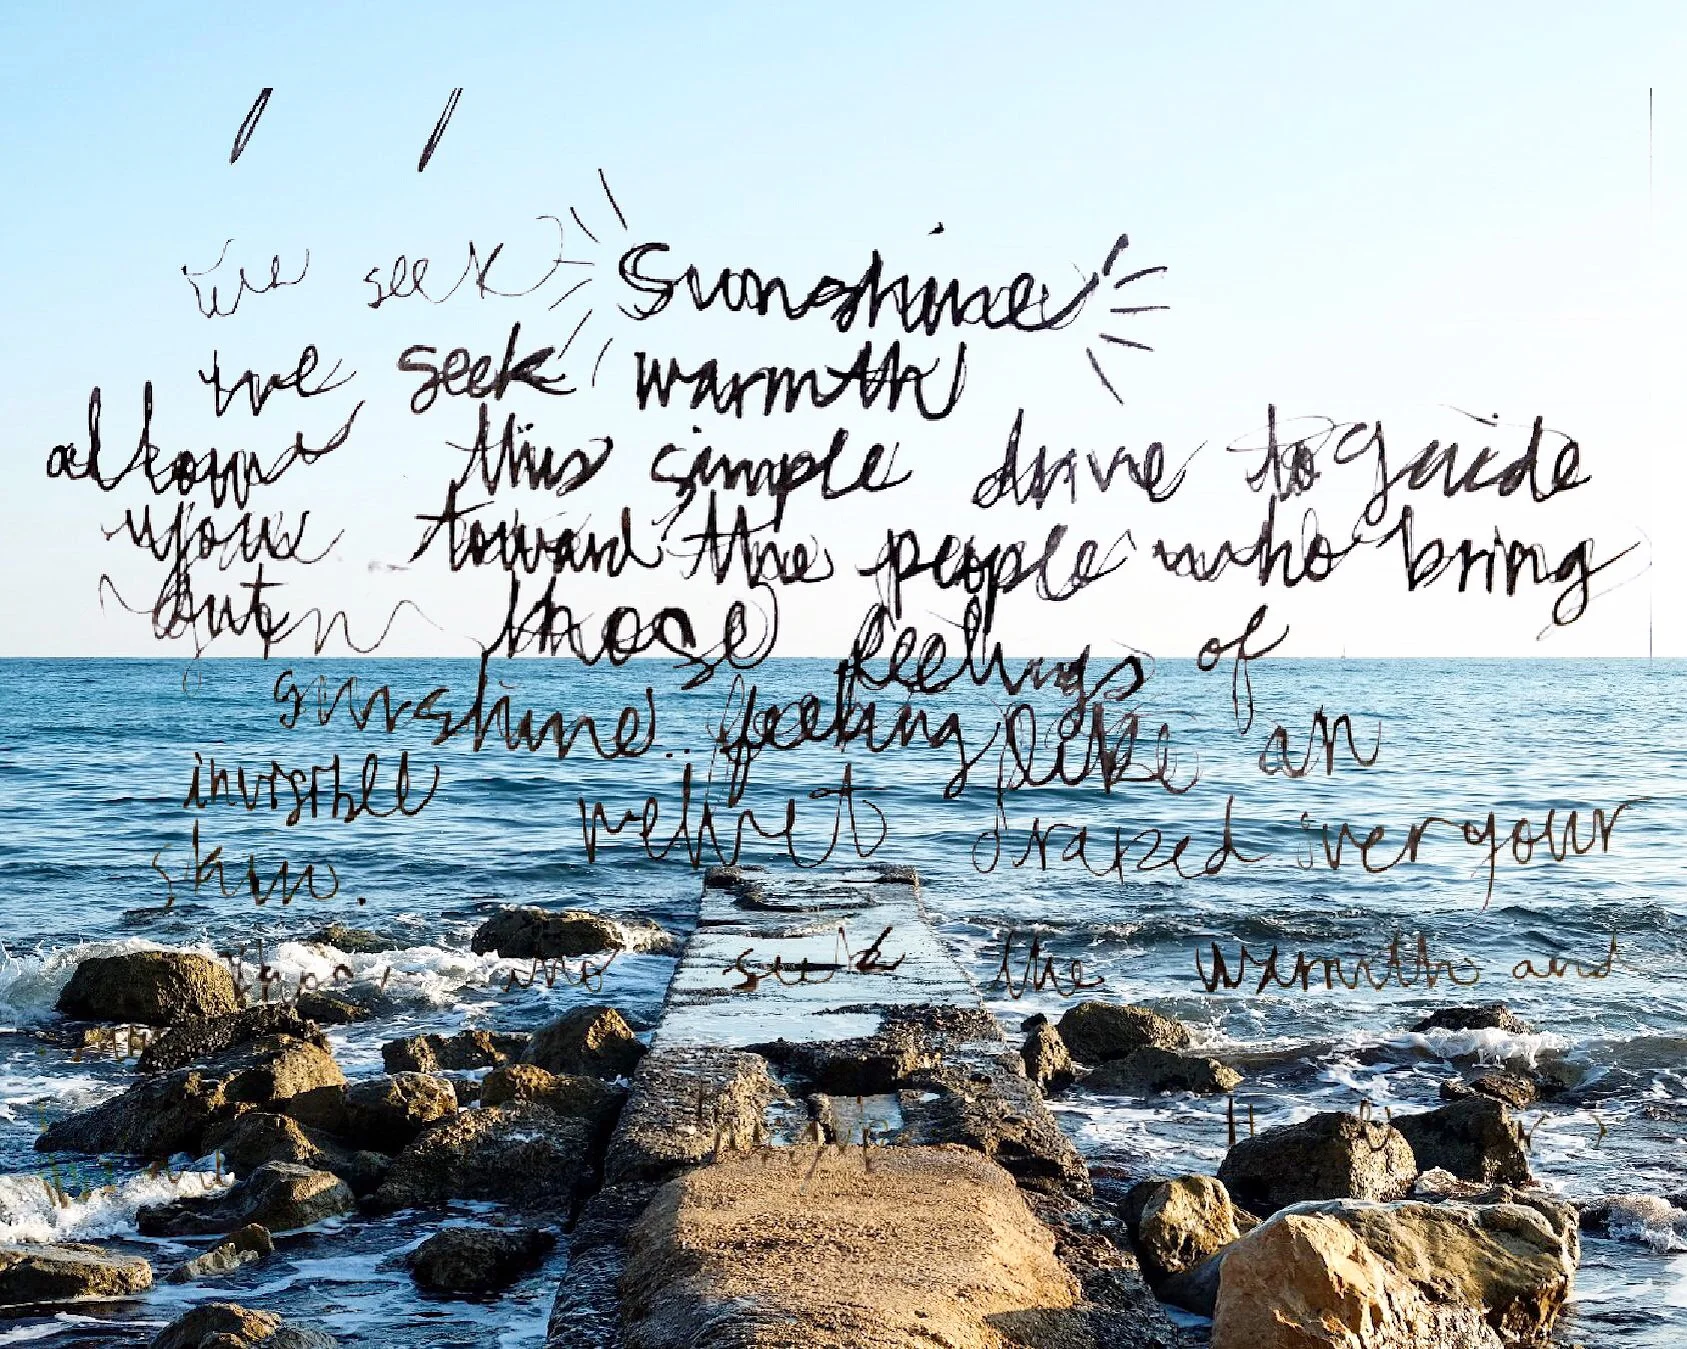 we seek sunshine
we seek warmth
allow this simple drive to guide
you toward the people who bring
out those feelings of
sunshine.. feeling like an
invisible velvet draped over your
skin.
who seek the warmth and